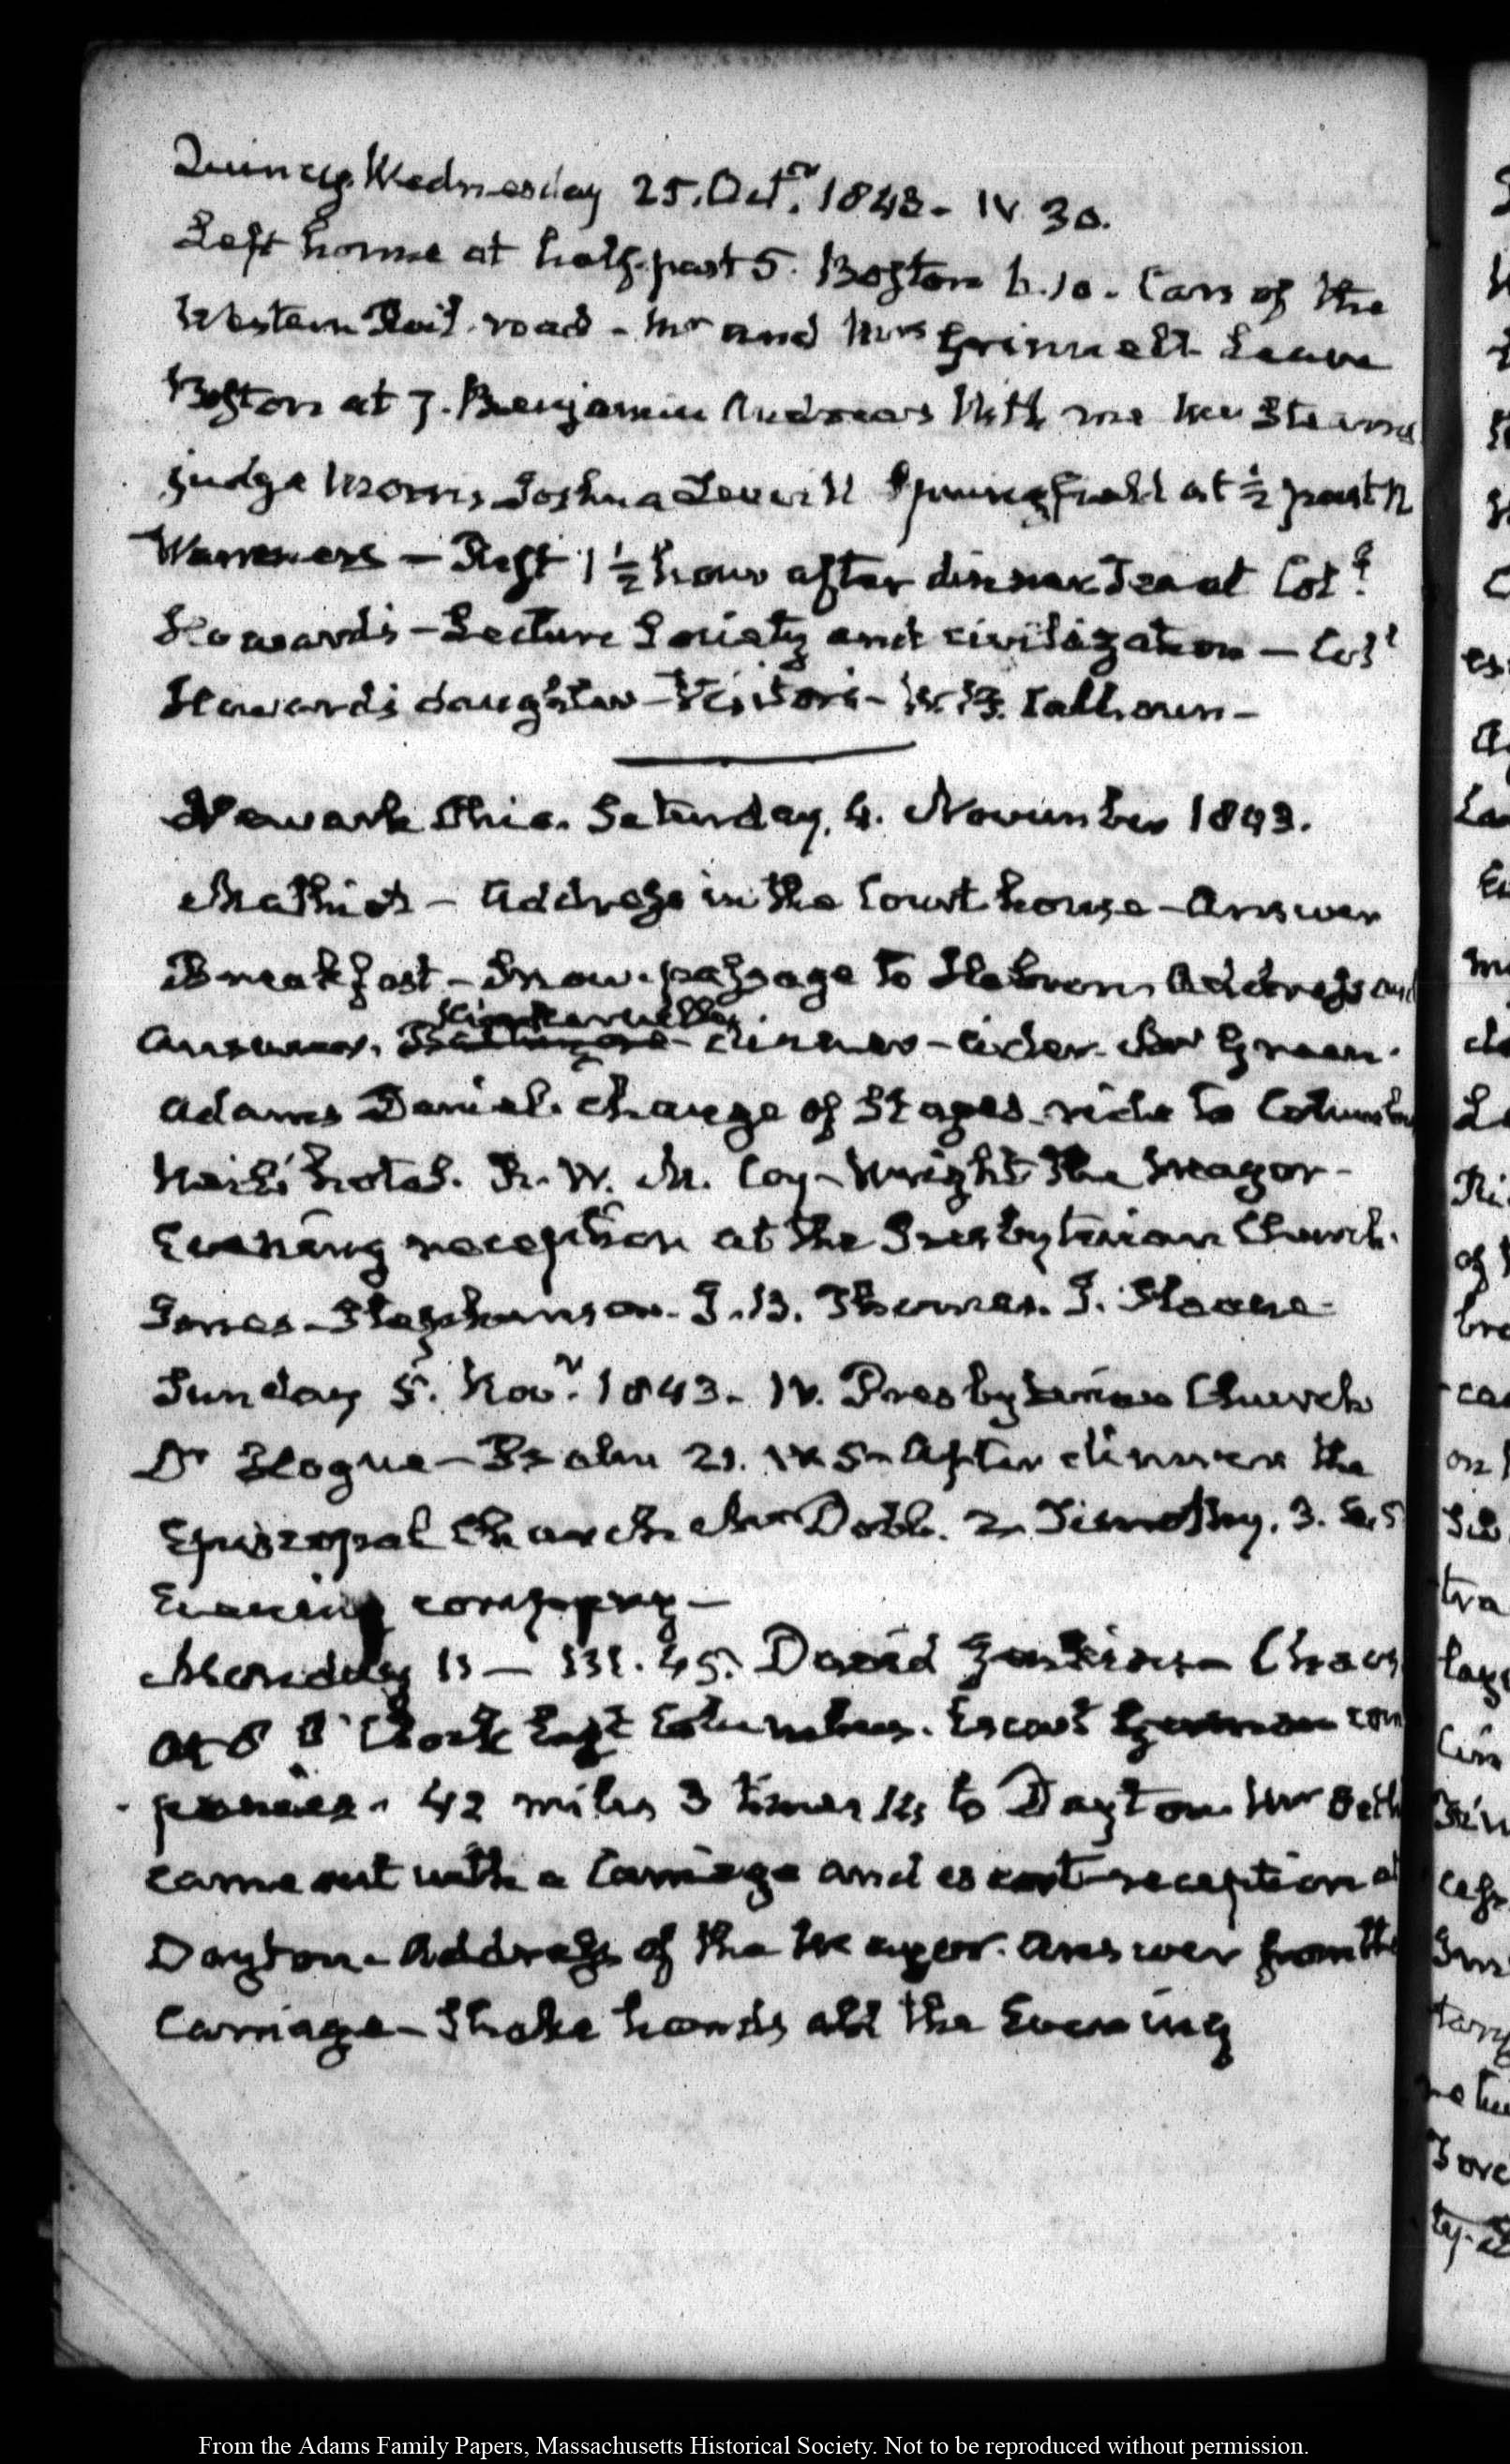 Quincy Wednesday 25. Oct.r 1843 - IV. 30.
Left home at half past 5. Boston 6.10. Cars of the
Western Rail-road - Mr and Mrs Grinnell Leave
Boston at 7. Benjamin Andrews With me Mr Stearns
judge Morris, Joshua Leavitt Springfield at ½ past 12
Warriners - Rest 1 ½ hour after dinner Tea at Col.l
Howard's - Lecture Society and civilization - Col.l
Howard's daughter - Visitors - W. B. Calhoun -
Newark Ohio. Saturday, 4. November 1843.
Mathiot - Address in the Court house - Answer
Breakfast - Snow. passage to Hebron Address and
answer. dinner - cider. Mr Green.
Adams Daniel. change of Stages. ride to Columbus
Neil's hotel. R. W. M. Coy - Wright the Mayor -
Evening reception at the Presbyterian Church.
Jones - Stephenson. J. B. Thomas. J. Sloane
Sunday 5. Nov.r 1843 - IV. Presbyterian Church
Dr Hogue - Psalm 21. After dinner the
Episcopal Church Mr Dobb. 2. Timothy. 3.
Evening company -
Monday 6 - III. 45. David Jenkins -
At 6 O'Clock left Columbus. Escort German com
panies. 42 miles 3 times 14 to Dayton Mr
came out with a Carriage and escort - reception at
Dayton - Address of the Mayor. Answer from the
Carriage - Shake hands all the Evening
From the Adams Family Papers, Massachusetts Historical Society. Not to be reproduced without permission.